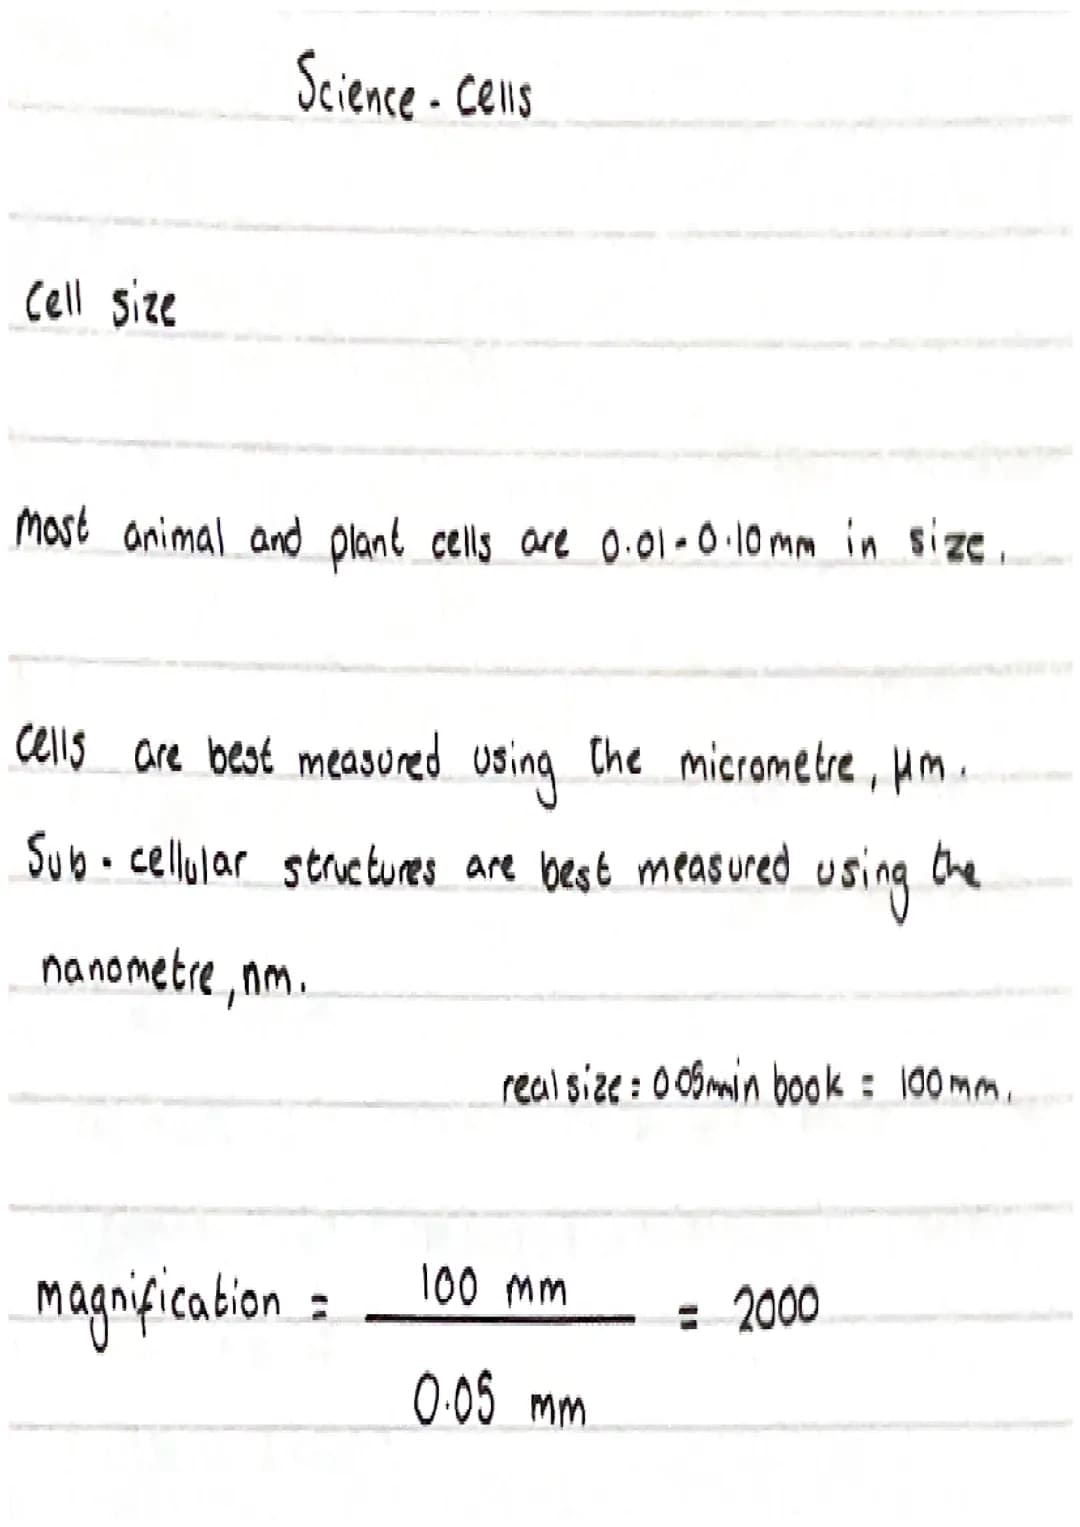 Science - Cells
Cell size
Most animal and plant cells are 0.01-0.10mm in size.
Cells are best measured using the micrometre, µm.
Sub-cellular structures are best measured using the
nanometre, nm.
real size: 0.05mm in book = 100mm.
magnification = 100 mm = 2000
0.05 mm